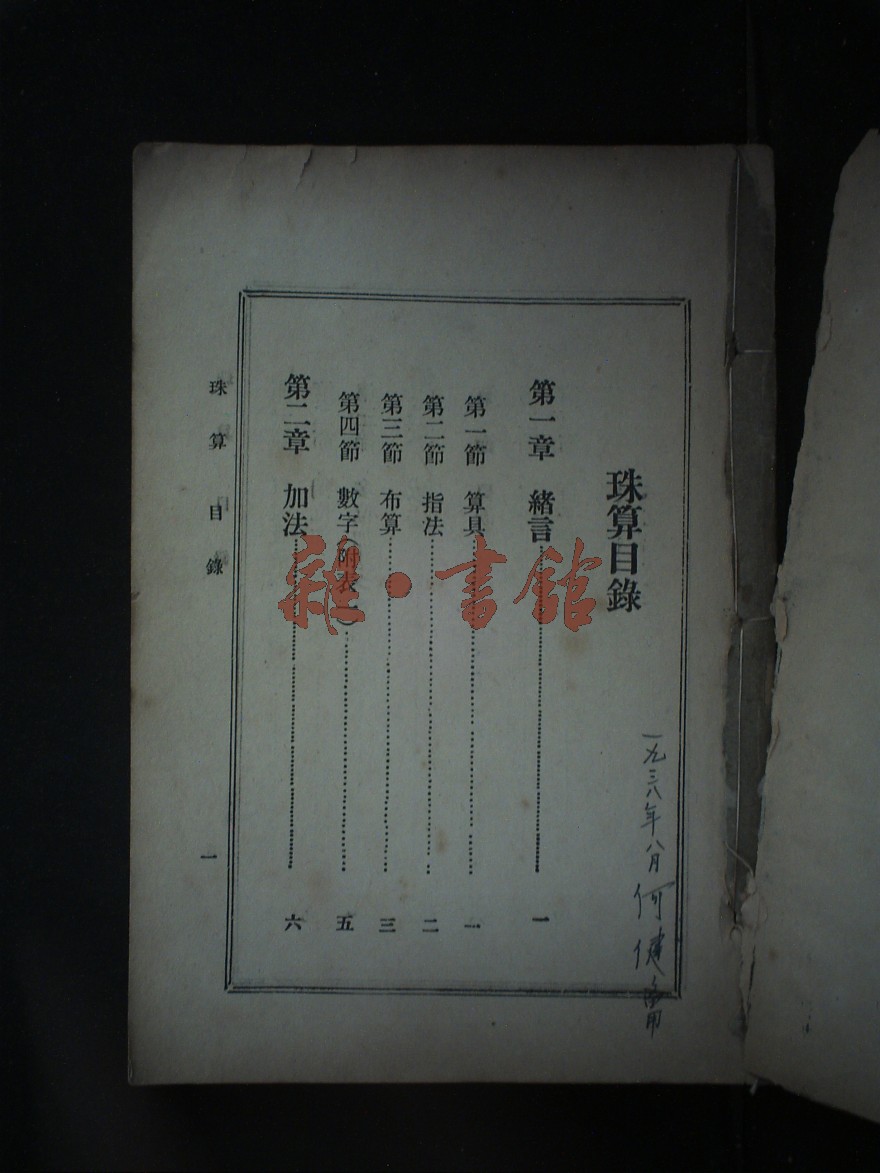 珠算目錄
一九三八年八月 何健
第一章 緒言 一
第一節 算具 一
第二節 指法 二
第三節 布算 三
第四節 數字(附表一) 五
第二章 加法 六
珠算目錄 一
雜·書館